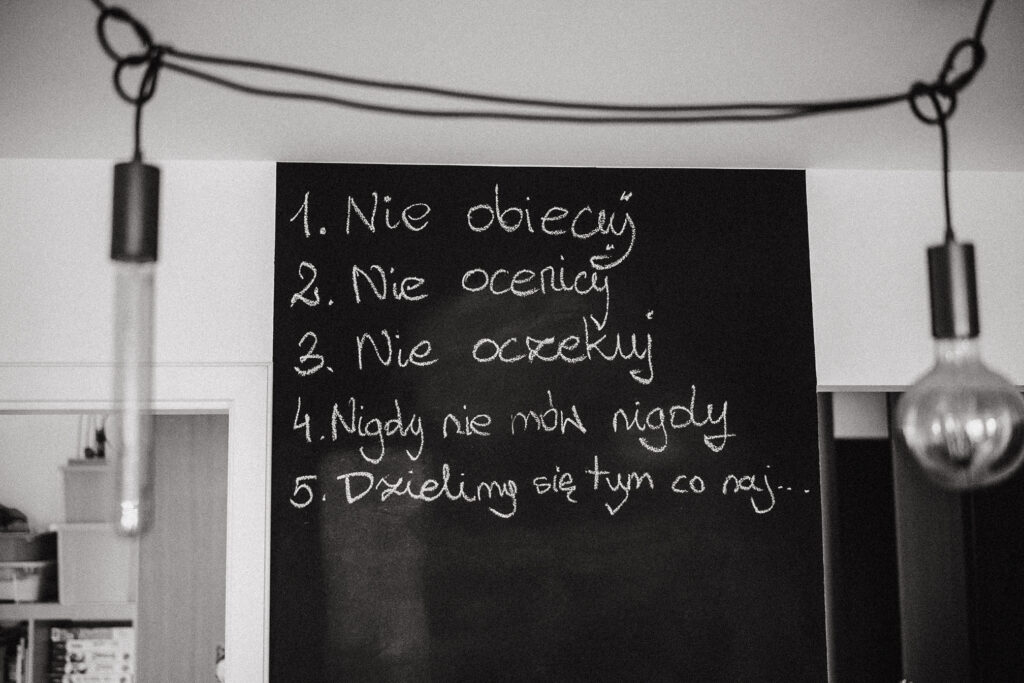 1. Nie obiecuj
2. Nie oceniaj
3. Nie oczekuj
4. Nigdy nie mów nigdy
5. Dzielimy się tym co naj...